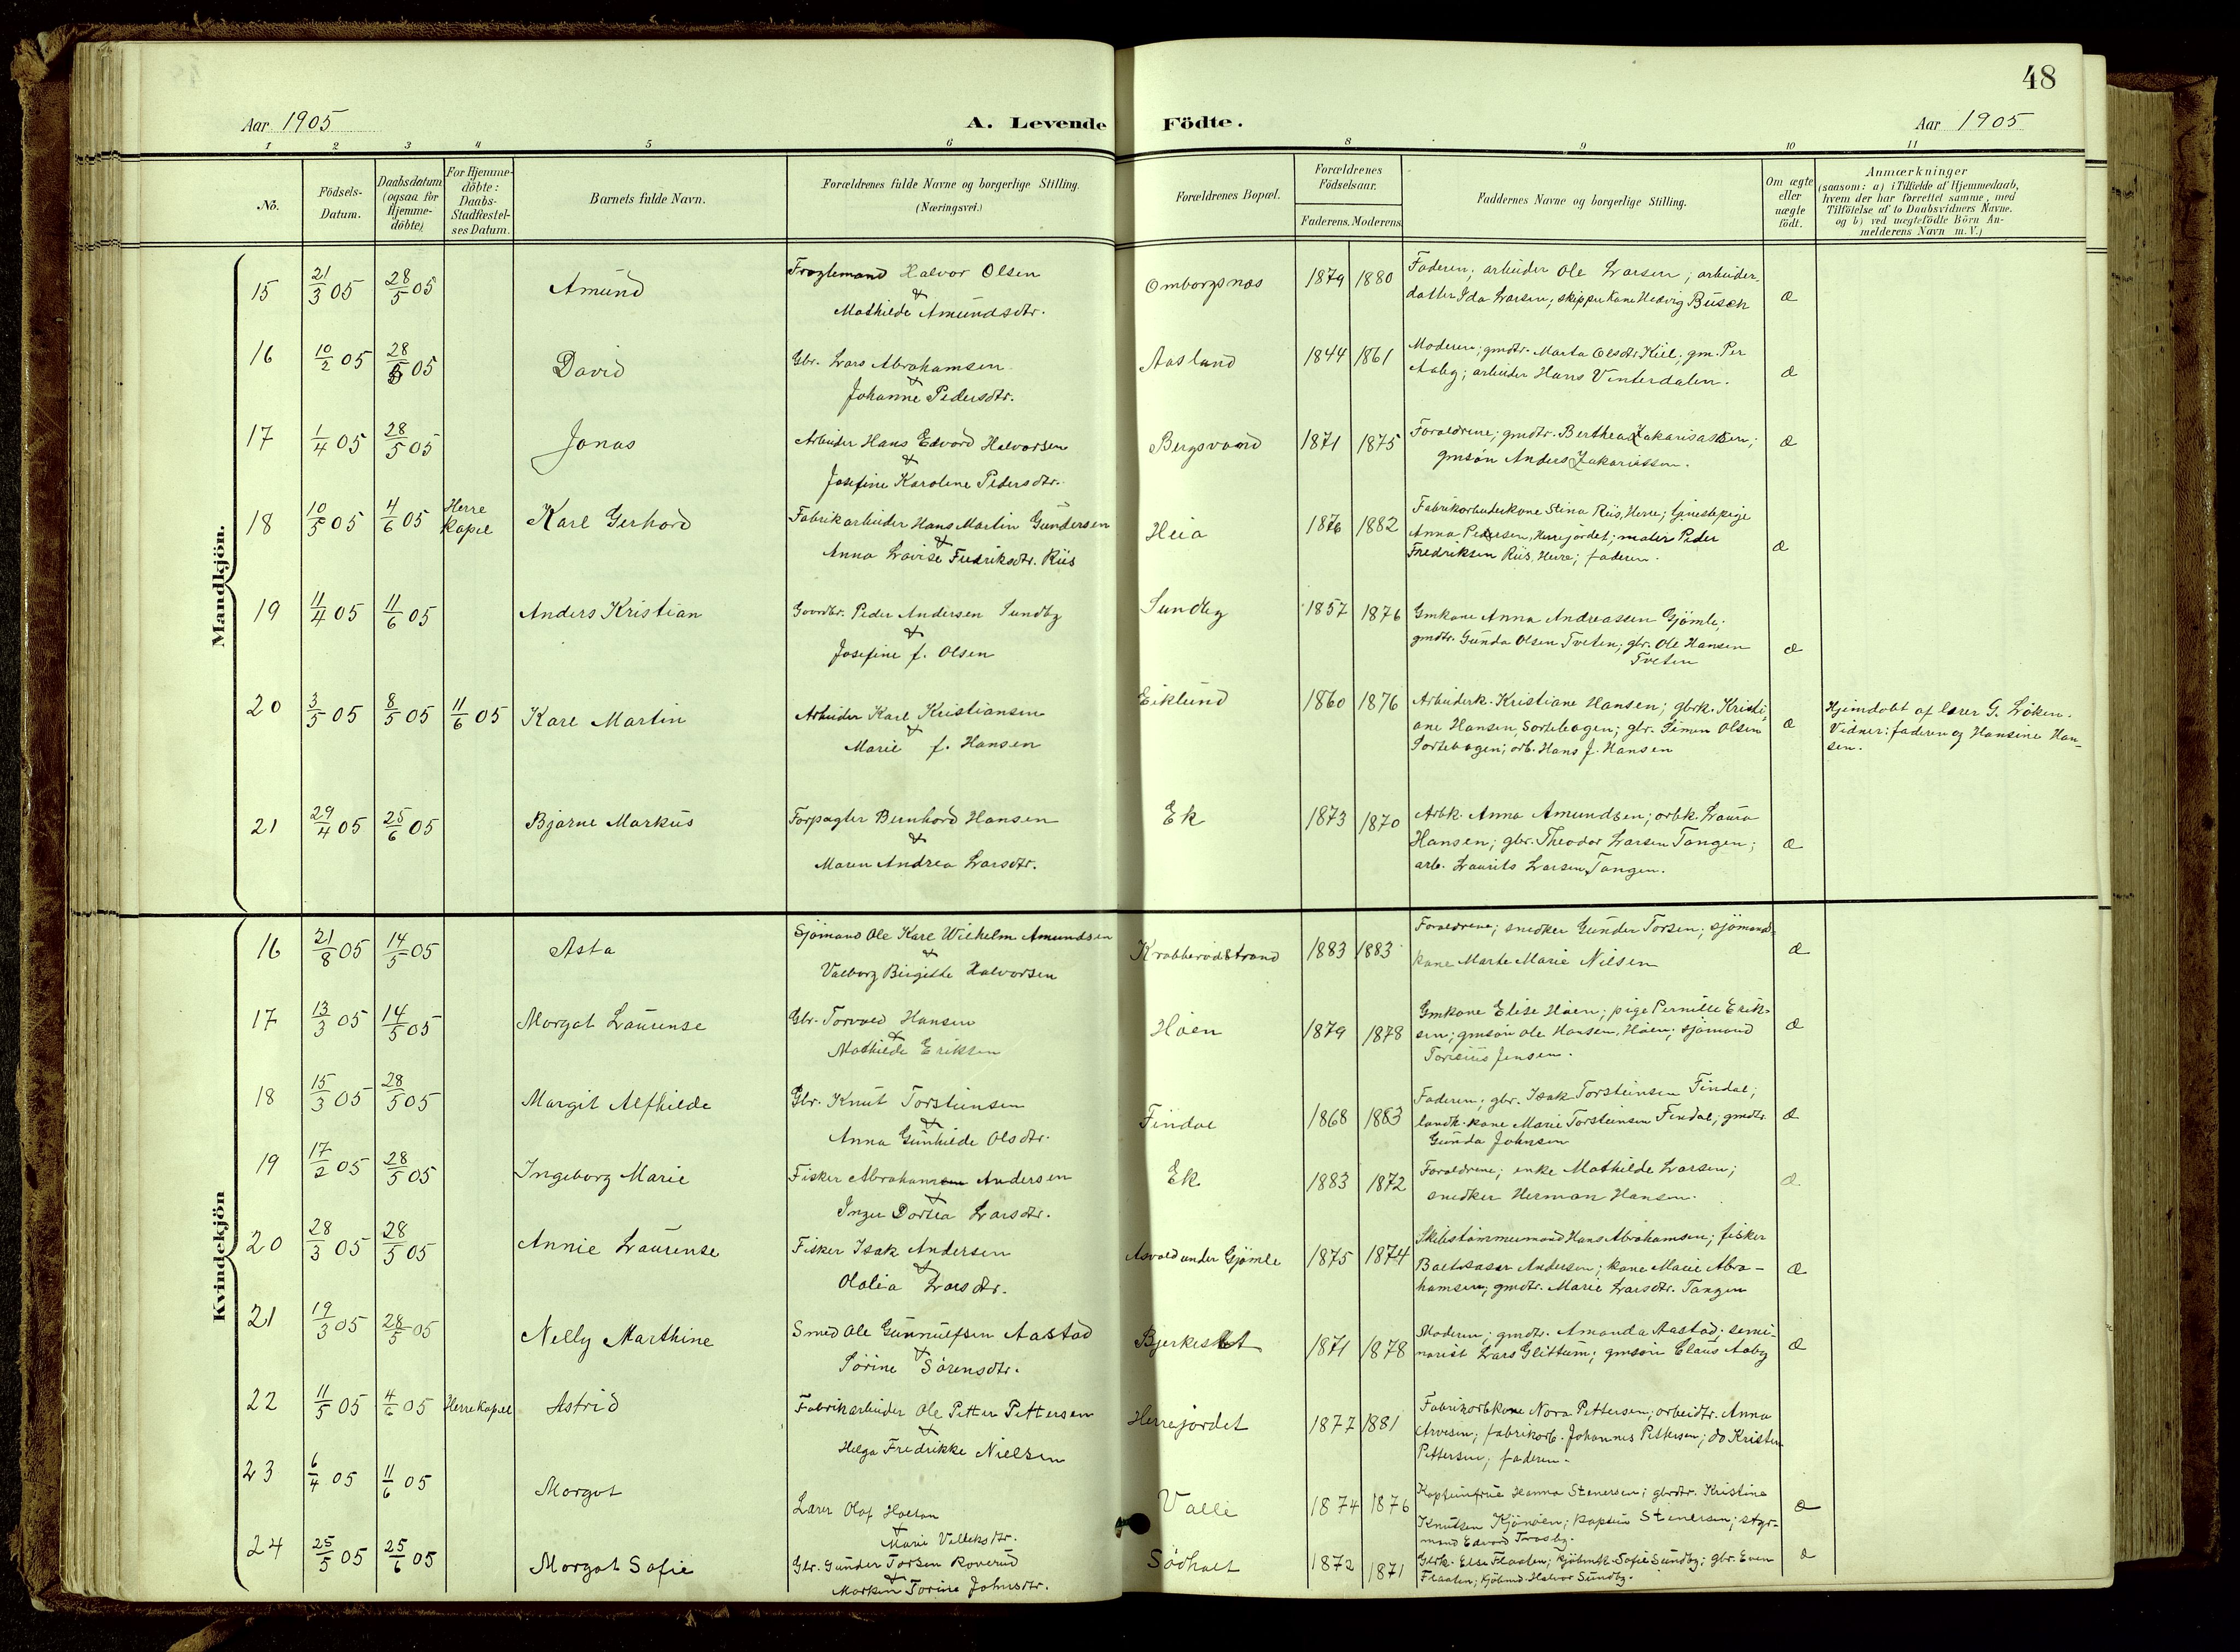 48
Aar 1905
A. Levende Födte.
Aar 1905
1 2 3 4 5 6 8 9 10 11
No.
Födsels-
Datum.
Daabsdatum
(ogsaa for
Hjemme-
döbte)
For Hjemme-
döbte:
Daabs-
Stadfæstel-
ses Datum.
Barnets fulde Navn.
Forældrenes fulde Navne og borgerlige Stilling.
(Næringsvei.)
Forældrenes Bopæl.
Forældrenes
Födselsaar.
Faderens. Moderens.
Faddernes Navne og borgerlige Stilling.
Om ægte
eller
uægte
födt.
Anmærkninger
(saasom: a) i Tilfælde af Hjemmedaab,
hvem der har forrettet samme, med
Tilföielse af to Daabsvidners Navne.
og b) ved uægtefödte Börn An-
melderens Navn m. V.)
Mandkjön.
15 21/3 05 28/5 05 Amund
Mathilde Amundsdtr.
&
Omborgsnæs 1879 1880
Faderen; arbeider Ole Larsen; arbeider-
datter Ida Larsen; skipperkone Hedvig Busch
æ
16 10/2 05 28/5 05 David
Gbr. Lars Abrahamsen
&
Johanne Pedersdtr.
Aaslund 1844 1861
Moderen; gmdtr. Marta Olsdtr. Kiil; gm. Per
Aaby; arbeider Hans Vinterdalen.
æ
17 1/4 05 28/5 05 Jonas
Arbeider Hans Edvard Halvorsen
&
Josefine Karoline Pedersdtr.
Bergsvand 1871 1875
Forældrene; gmdtr. Berthea Zakariassen;
gmsön Anders Zakariassen.
æ
18 10/5 05 4/6 05 Herre
Kapel
Karl Gerhard
Fabrikarbeider Hans Martin Gundersen
&
Anna Lovise Fredriksdtr. Riis
Heia 1876 1882
Fabrikarbeiderkone Stina Riis, Herre; tjenestepige
Anna Pedersen, Herrejordet; maler Peder
Fredriksen Riis, Herre; faderen.
æ
19 11/4 05 11/6 05 Anders Kristian
Gaardbr. Peder Andersen Sundby
&
Josefine f. Olsen
Sundby 1857 1876
Gmkone Anna Andreassen Gjömle;
gmdtr. Gunda Olsen Tveten; gbr. Ole Hansen
Tveten
æ
20 3/5 05 8/5 05 11/6 05 Karl Martin
Arbeider Karl Kristiansen
&
Marie f. Hansen
Eiklund 1860 1876
Arbeiderk. Kristiane Hansen; gbrk. Kristi-
ane Hansen, Sortebogen; gbr. Simon Olsen
Sortebogen; arb. Hans J. Hansen
æ
Hjemdøbt af lærer G. Löken.
Vidner: faderen og Hansine Han-
sen.
21 29/4 05 25/6 05 Bjarne Markus
Forpagter Bernhard Hansen
&
Maren Andrea Larsdtr.
Ek 1873 1870
Arbk. Anna Amundsen; arbk. Laura
Hansen; gbr. Theodor Larsen Tangen;
arb. Laurits Larsen, Tangen.
æ
Kvindekjön
16 21/8 05 14/5 05 Asta
Sjömand Ole Karl Wilhelm Amundsen
&
Valborg Birgitte Halvorsen
Krabberödstrand 1883 1883
Forældrene; snedker Gunder Torsen; sjömands-
kone Marte Marie Nilsen
æ
17 13/3 05 14/5 05 Margot Laurense
Gbr. Torvald Hansen
&
Mathilde Eriksen
Håen 1879 1878
Gmkone Elise Håen; pige Pernille Erik-
sen; gmsön Ole Hansen, Håen; sjömand
Jensen.
æ
18 15/3 05 28/5 05 Margit Alfhilde
Gbr. Knut Torsteinsen
&
Anna Gunhilde Olsdtr.
Findal 1868 1883
Faderen; gbr. Isak Torsteinsen Findal;
landh. kone Marie Torsteinsen Findal; gmdtr.
Gunda Johnsen
æ
19 17/2 05 28/5 05 Ingeborg Marie
Fisker Abraham Andersen
&
Inger Dortea Larsdtr.
Ek 1883 1872
Forældrene; enke Mathilde Larsen;
snedker Herman Hansen.
æ
20 28/3 05 28/5 05 Annie Laurense
Fisker Isak Andersen
&
Olalia Larsdtr.
Asvald under Gjömle 1875 1874
Skibstömmermand Hans Abrahamsen; fisker
Baltasar Andersen; kone Marie Abra-
hamsen; gmdtr. Marie Larsdtr. Tangen
æ
21 19/3 05 28/5 05 Nelly Marthine
Smed Ole Gunnulfsen Aastad
&
Sörine Sörensdtr.
Bjerkeslet 1871 1878
Moderen; gmdtr. Amanda Aastad; semi-
narist Lars Glittum; gmsön Claus Aaby
æ
22 11/5 05 4/6 05 Herre Kapel Astrid
Fabrikarbeider Ole Petter Pettersen
&
Helga Fredrikke Nielsen
Herrejordet 1877 1881
Fabrikarbkone Nora Pettersen; arbeidtr. Anna
Arvesen; fabrikarb. Johannes Pettersen; do Kristen
Pettersen; faderen.
23 6/4 05 11/6 05 Margot
Lærer Olaf Holtan
&
Marie Valleksdtr.
Valle 1874 1876
Kapteinfrue Hanna Stenersen; gbrdtr. Kristine
Knutsen Kjönöen; kaptein Stenersen; styr-
mand Edvard Trosby.
æ
24 25/5 05 25/6 05 Margot Sofie
Gbr. Gunder Torsen Roverud
&
Marken Torine Johnsdtr.
Södholt 1872 1871
Gbrk. Else Flaaten; kjöbmk. Sofie Sundby; gbr. Even
Flaaten; kjöbmd. Halvor Sundby.
æ